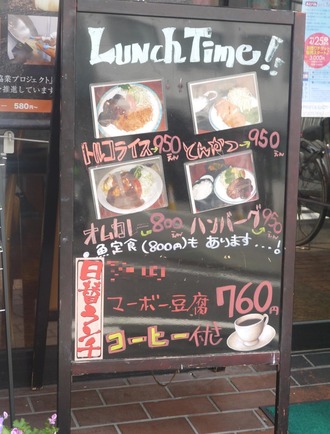 産業プロジェクト」
を推進しています
580円〜
LUNCH TIME!!
トルコライス→950えん
とんかつ→950
オムカレー→800えん
ハンバーグ→950えん
・魚定食(800円)も あります...!
日替ランチ
マーボー豆腐 760円
コーヒー付き